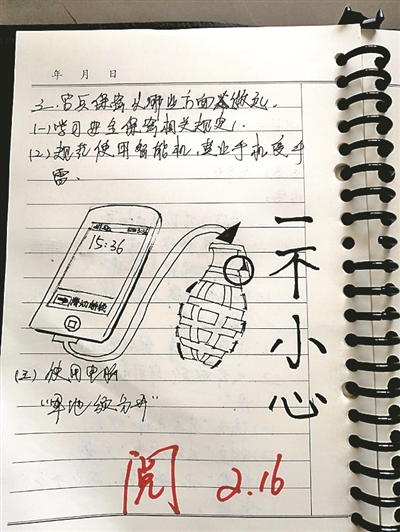 年 月 日
三、官兵保密从哪些方面来做起.
(一)学习安全保密相关规定;
(二)规范使用智能机,莫让手机变手
雷.
15:36
滑动解锁
一不小心
(三)使用电脑
"军地须分开"
阅 2.16